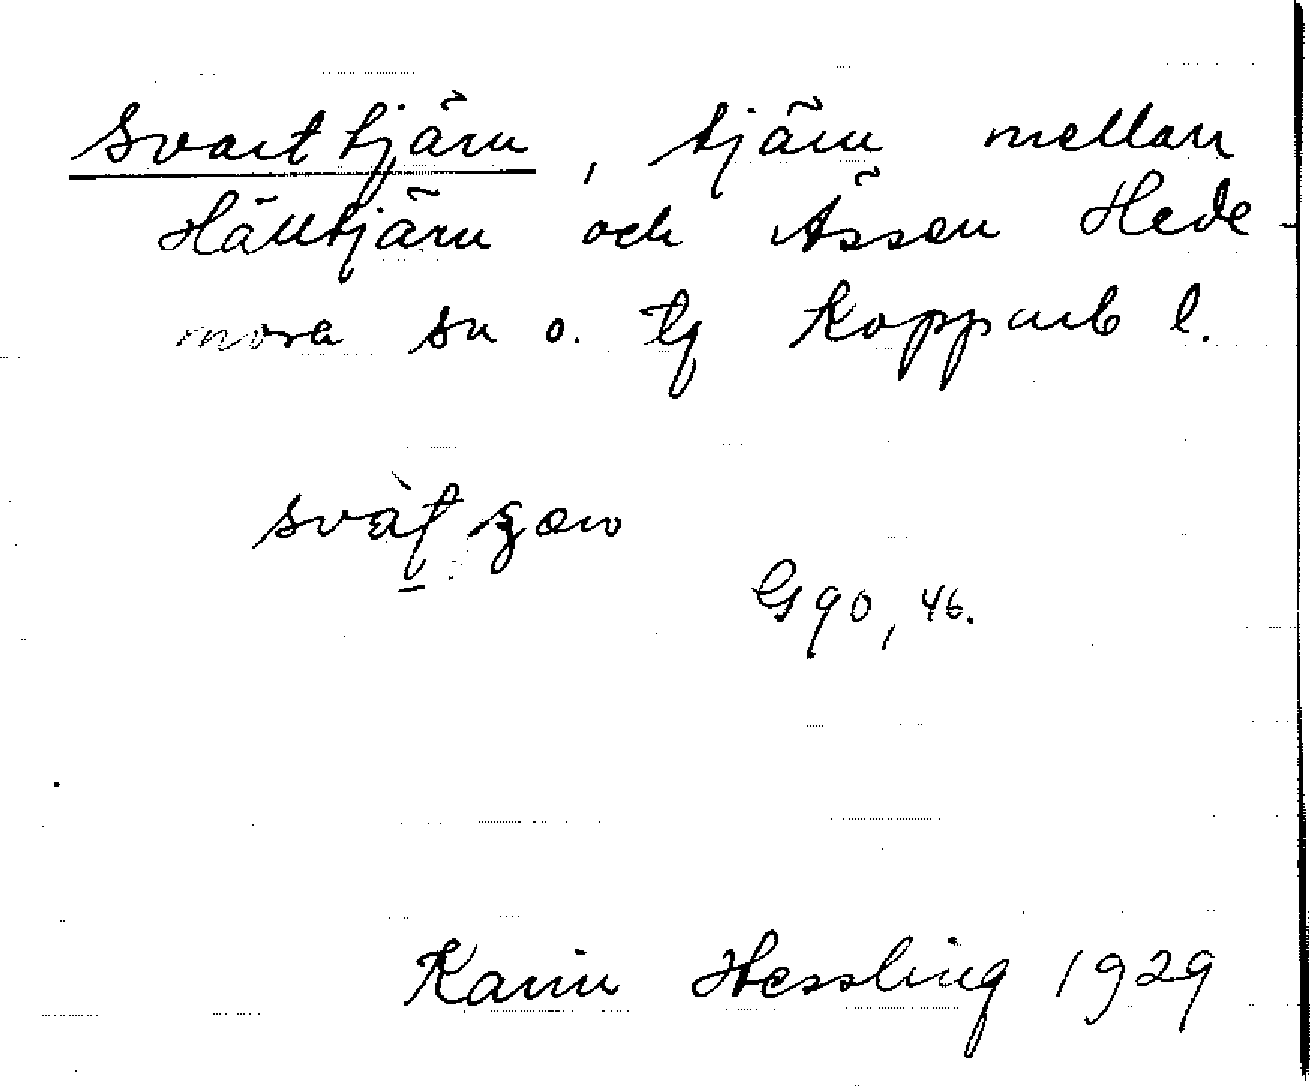 Svarttjärn, tjärn mellan
Hälltjärn och Ässen Hede-
mora sn o. tg Kopparb l.
G 90, 46.
Karin Hessling 1929